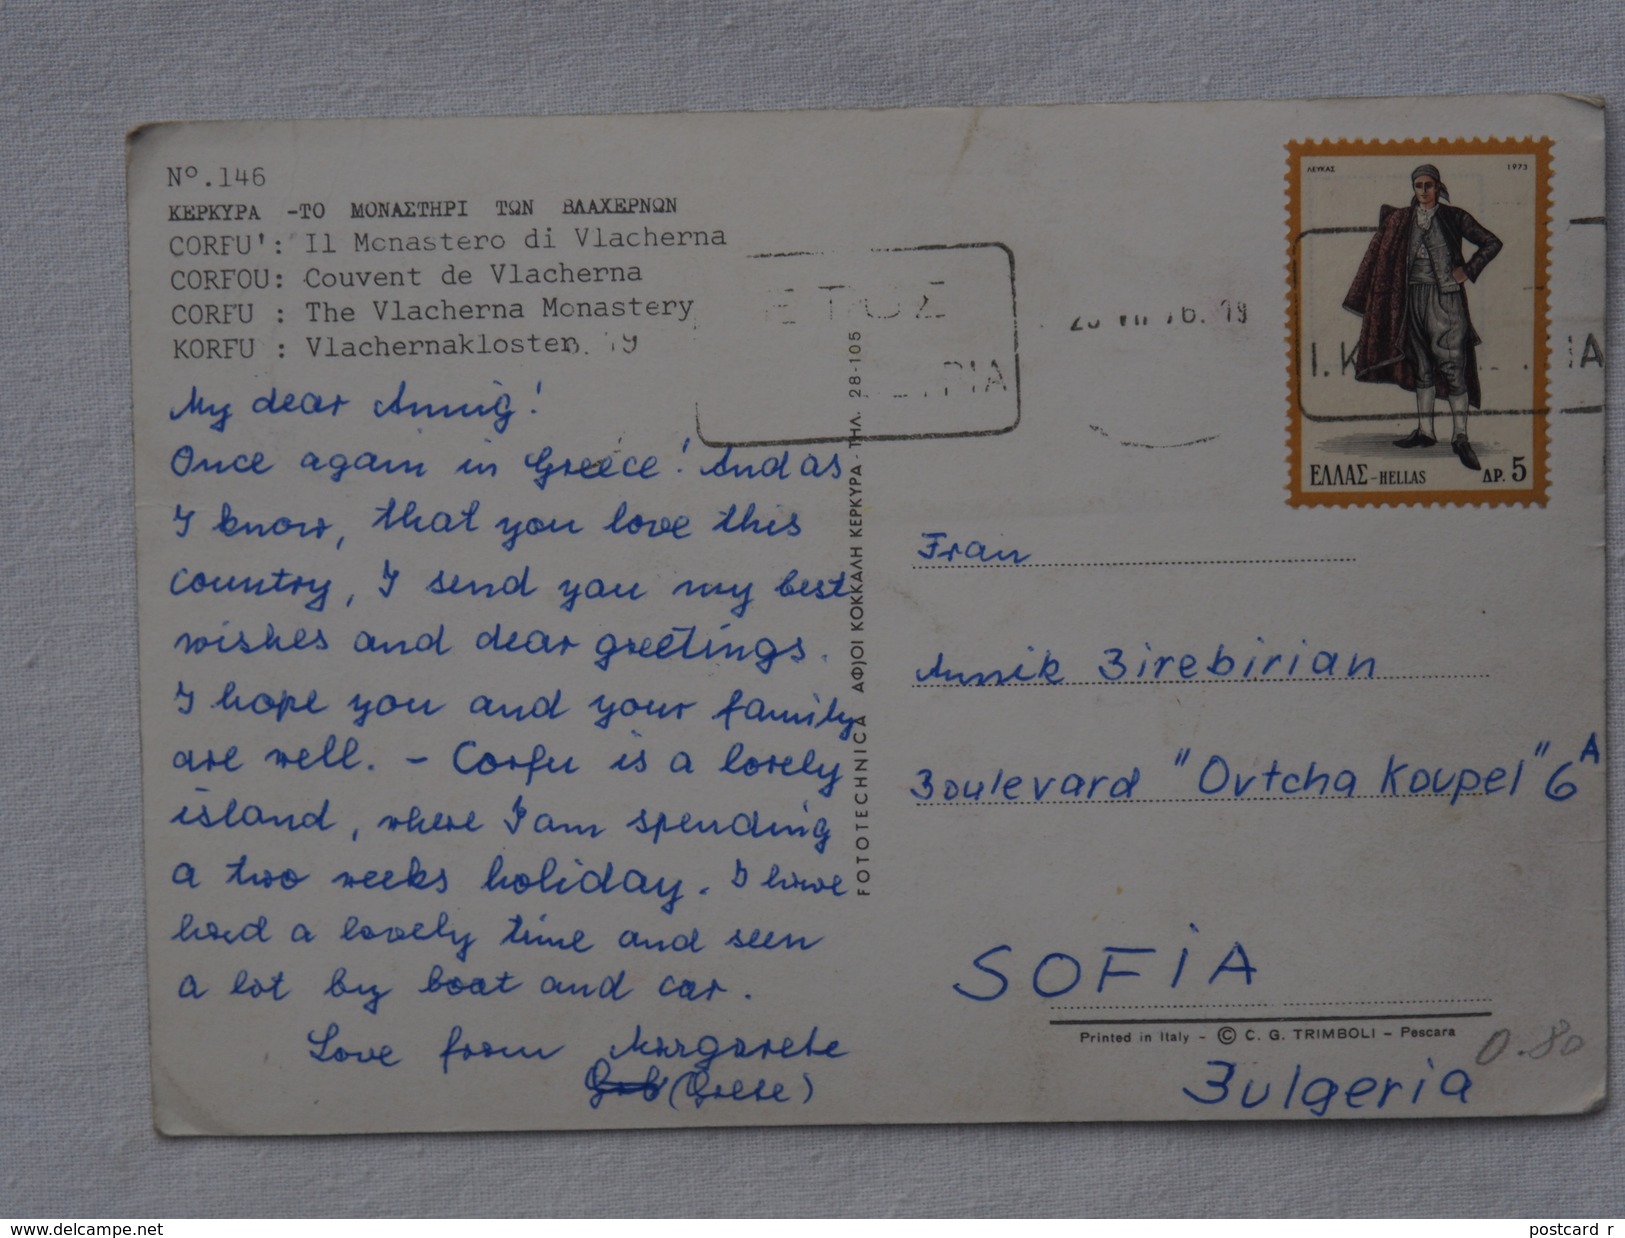 Nº.146
ΚΕΡΚΥΡΑ -ΤΟ ΜΟΝΑΣΤΗΡΙ ΤΩΝ ΒΛΑΧΕΡΝΩΝ
CORFU': Il Monastero di Vlacherna
CORFOU: Couvent de Vlacherna
CORFU : The Vlacherna Monastery
KORFU : Vlachernaklosten. 19
My dear Annig!
Once again in Greece! And as
I know, that you love this
country, I send you my best
wishes and dear greetings.
I hope you and your family
are well. – Corfu is a lovely
island, where I am spending
a two weeks holiday. I have
had a lovely time and seen
a lot by boat and car.
Love from Margarete
(Grete)
FOTOTECHNICA ΑΦΙΟΙ ΚΟΚΚΑΛΗ ΚΕΡΚΥΡΑ - ΤΗΛ. 28-105
ΕΤΟΣ
ΡΙΑ
VII 76. 19
ΛΕΥΚΑΣ 1973
Ι.Κ ΙΑ
ΕΛΛΑΣ-HELLAS ΔΡ. 5
Frau
Annik Birebirian
Boulevard "Ovtcha Koupel" 6A
SOFiA
Printed in Italy - © C. G. TRIMBOLI - Pescara
0.80
Bulgeria
www.delcampe.net
postcard_r